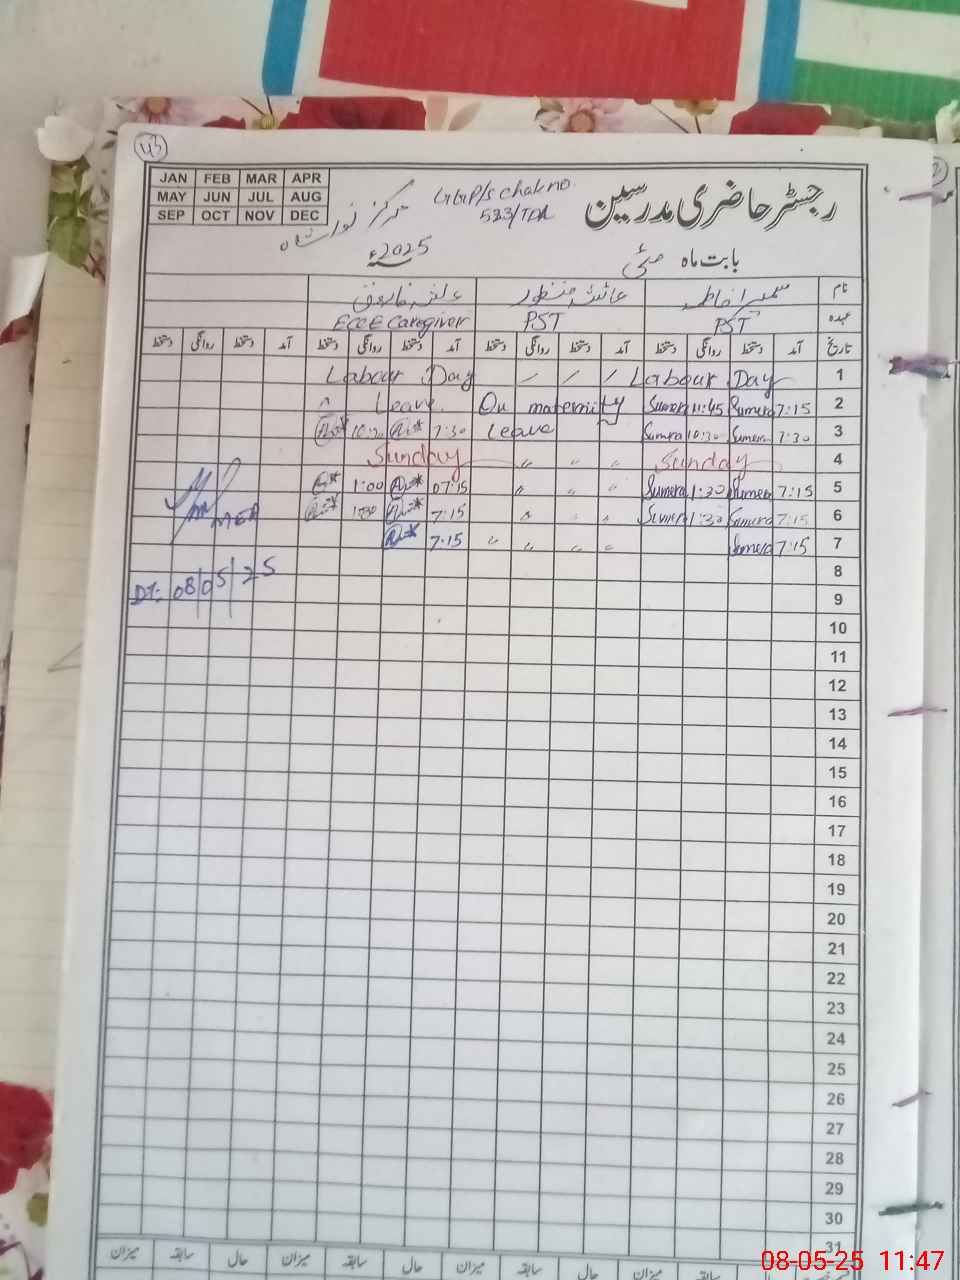 43
JAN FEB MAR APR
MAY JUN JUL AUG
SEP OCT NOV DEC
رجسٹر حاضری مدرسین
GGP/S chak no.
533/TDA
مرکز نور شاہ
بابت ماہ مئی 2025ء
نام سمیرا فاطمہ عائشہ منظور
عہدہ PST PST ECCE Caregiver
تاریخ آمد دستخط روانگی دستخط آمد دستخط روانگی دستخط آمد دستخط روانگی دستخط آمد دستخط روانگی دستخط
1 Labour Day / / / Labour Day
2 7:15 Sumera 11:45 Sumera On maternity Leave
3 7:30 Sumera 10:30 Sumera Leave 7:30 10:30
4 Sunday " " " Sunday
5 7:15 Sumera 1:30 Sumera " " " 07:15 1:00
6 7:15 Sumera 1:30 Sumera " " " 7:15 1:30
7 7:15 Sumera " " " " 7:15
8
Dt: 08/05/25
9
10
11
12
13
14
15
16
17
18
19
20
21
22
23
24
25
26
27
28
29
30
31
میزان سابقہ حال میزان سابقہ حال میزان سابقہ حال میزان سابقہ
08-05-25 11:47